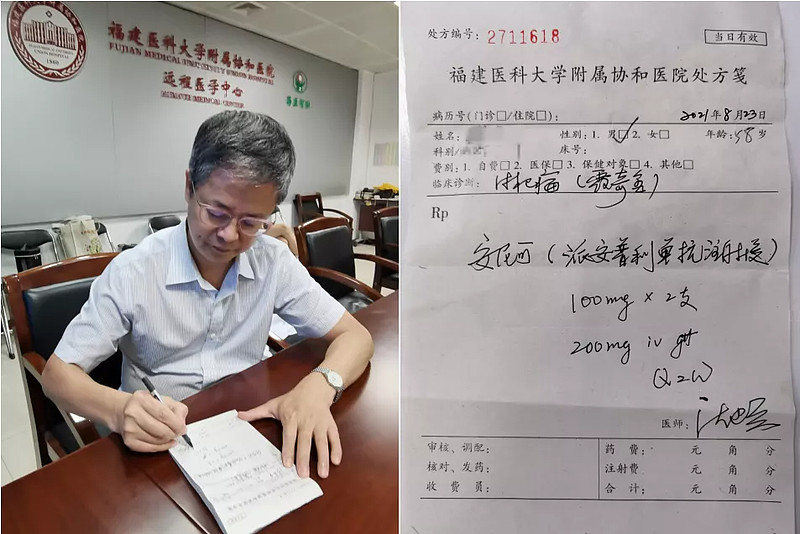 福建医科大学附属协和医院
FUJIAN MEDICAL UNIVERSITY UNION HOSPITAL
远程医学中心
REMOTE MEDICAL CENTER
1860
处方编号: 2711618
当日有效
福建医科大学附属协和医院处方笺
病历号(门诊□/住院□): 2021年8月23日
姓名: 性别: 1. 男□ 2. 女□ 年龄: 58岁
科别/ 床号:
费别: 1. 自费□ 2. 医保□ 3. 保健对象□ 4. 其他□
临床诊断: 淋巴瘤(霍奇金)
Rp
安尼可(派安普利单抗注射液)
100mg × 2支
200mg iv gtt
Q2W
医师:
审核、调配: 药费: 元 角 分
核对、发药: 注射费 元 角 分
收费员: 合计: 元 角 分